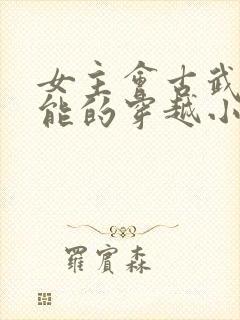 女主會古武
能的穿越小
羅賓森